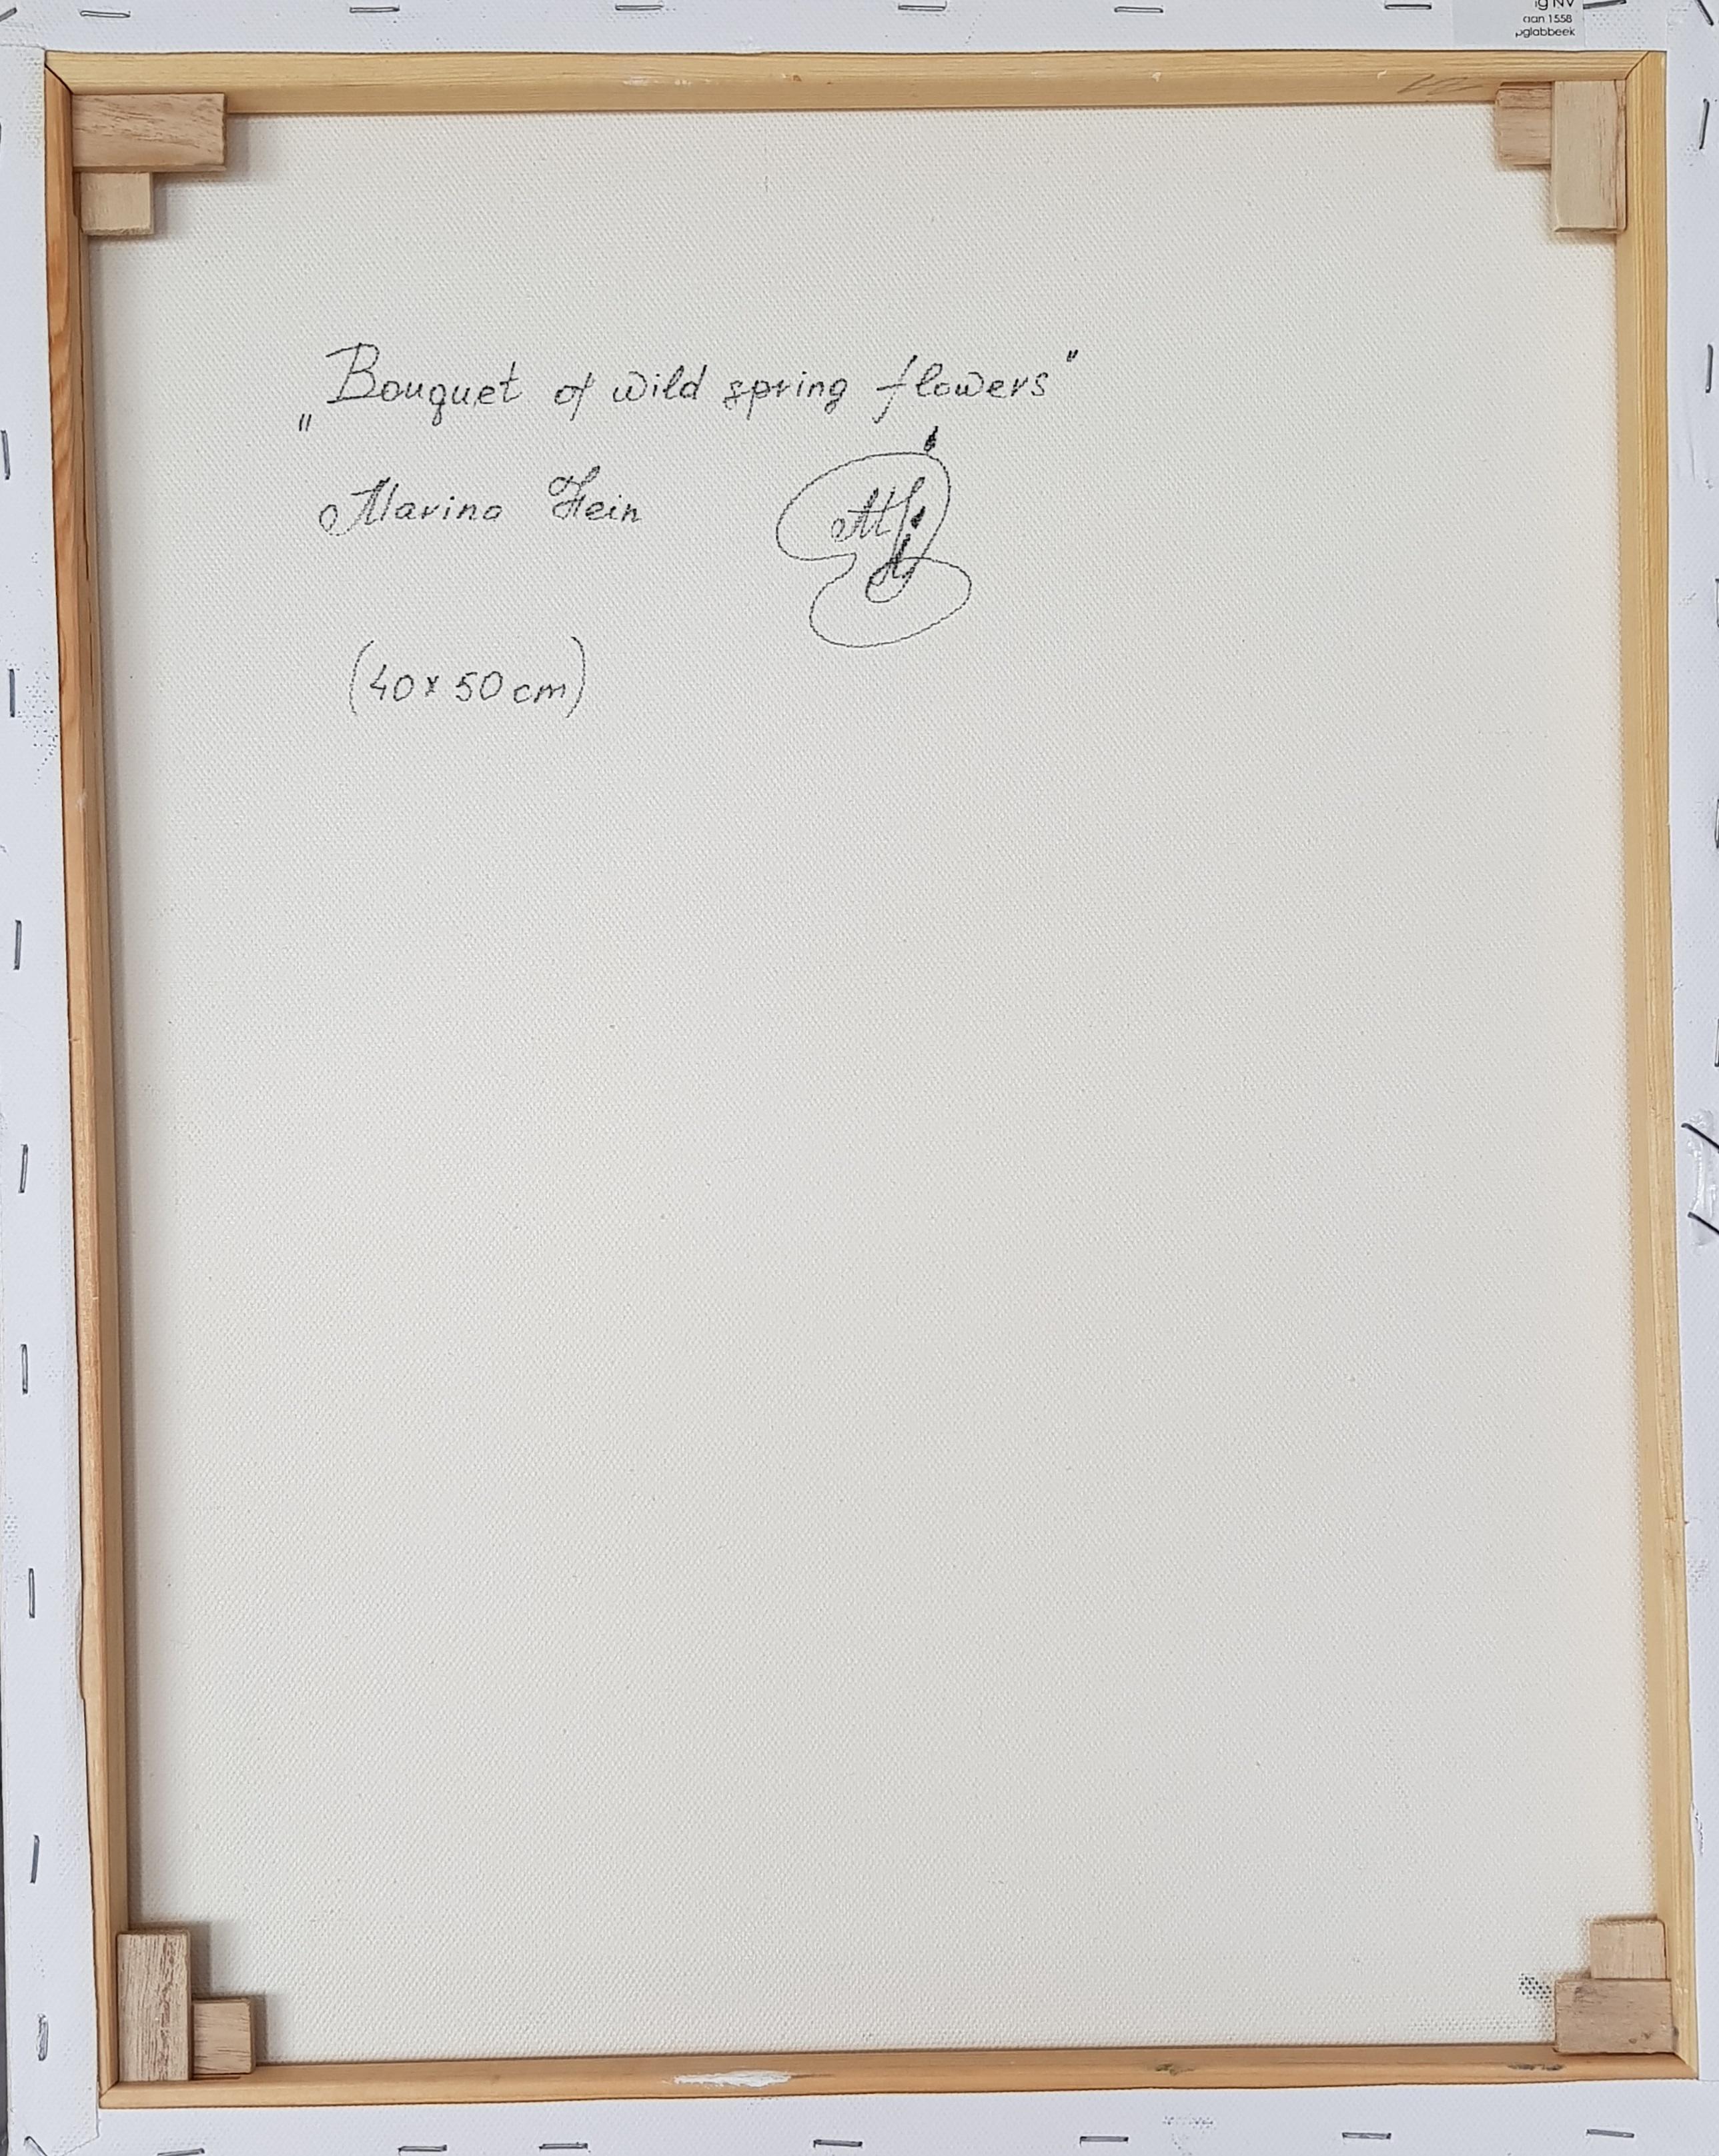 ig NV
aan 1558
pglabbeek
„Bouquet of wild spring flowers"
Marina Hein
(40 x 50 cm)